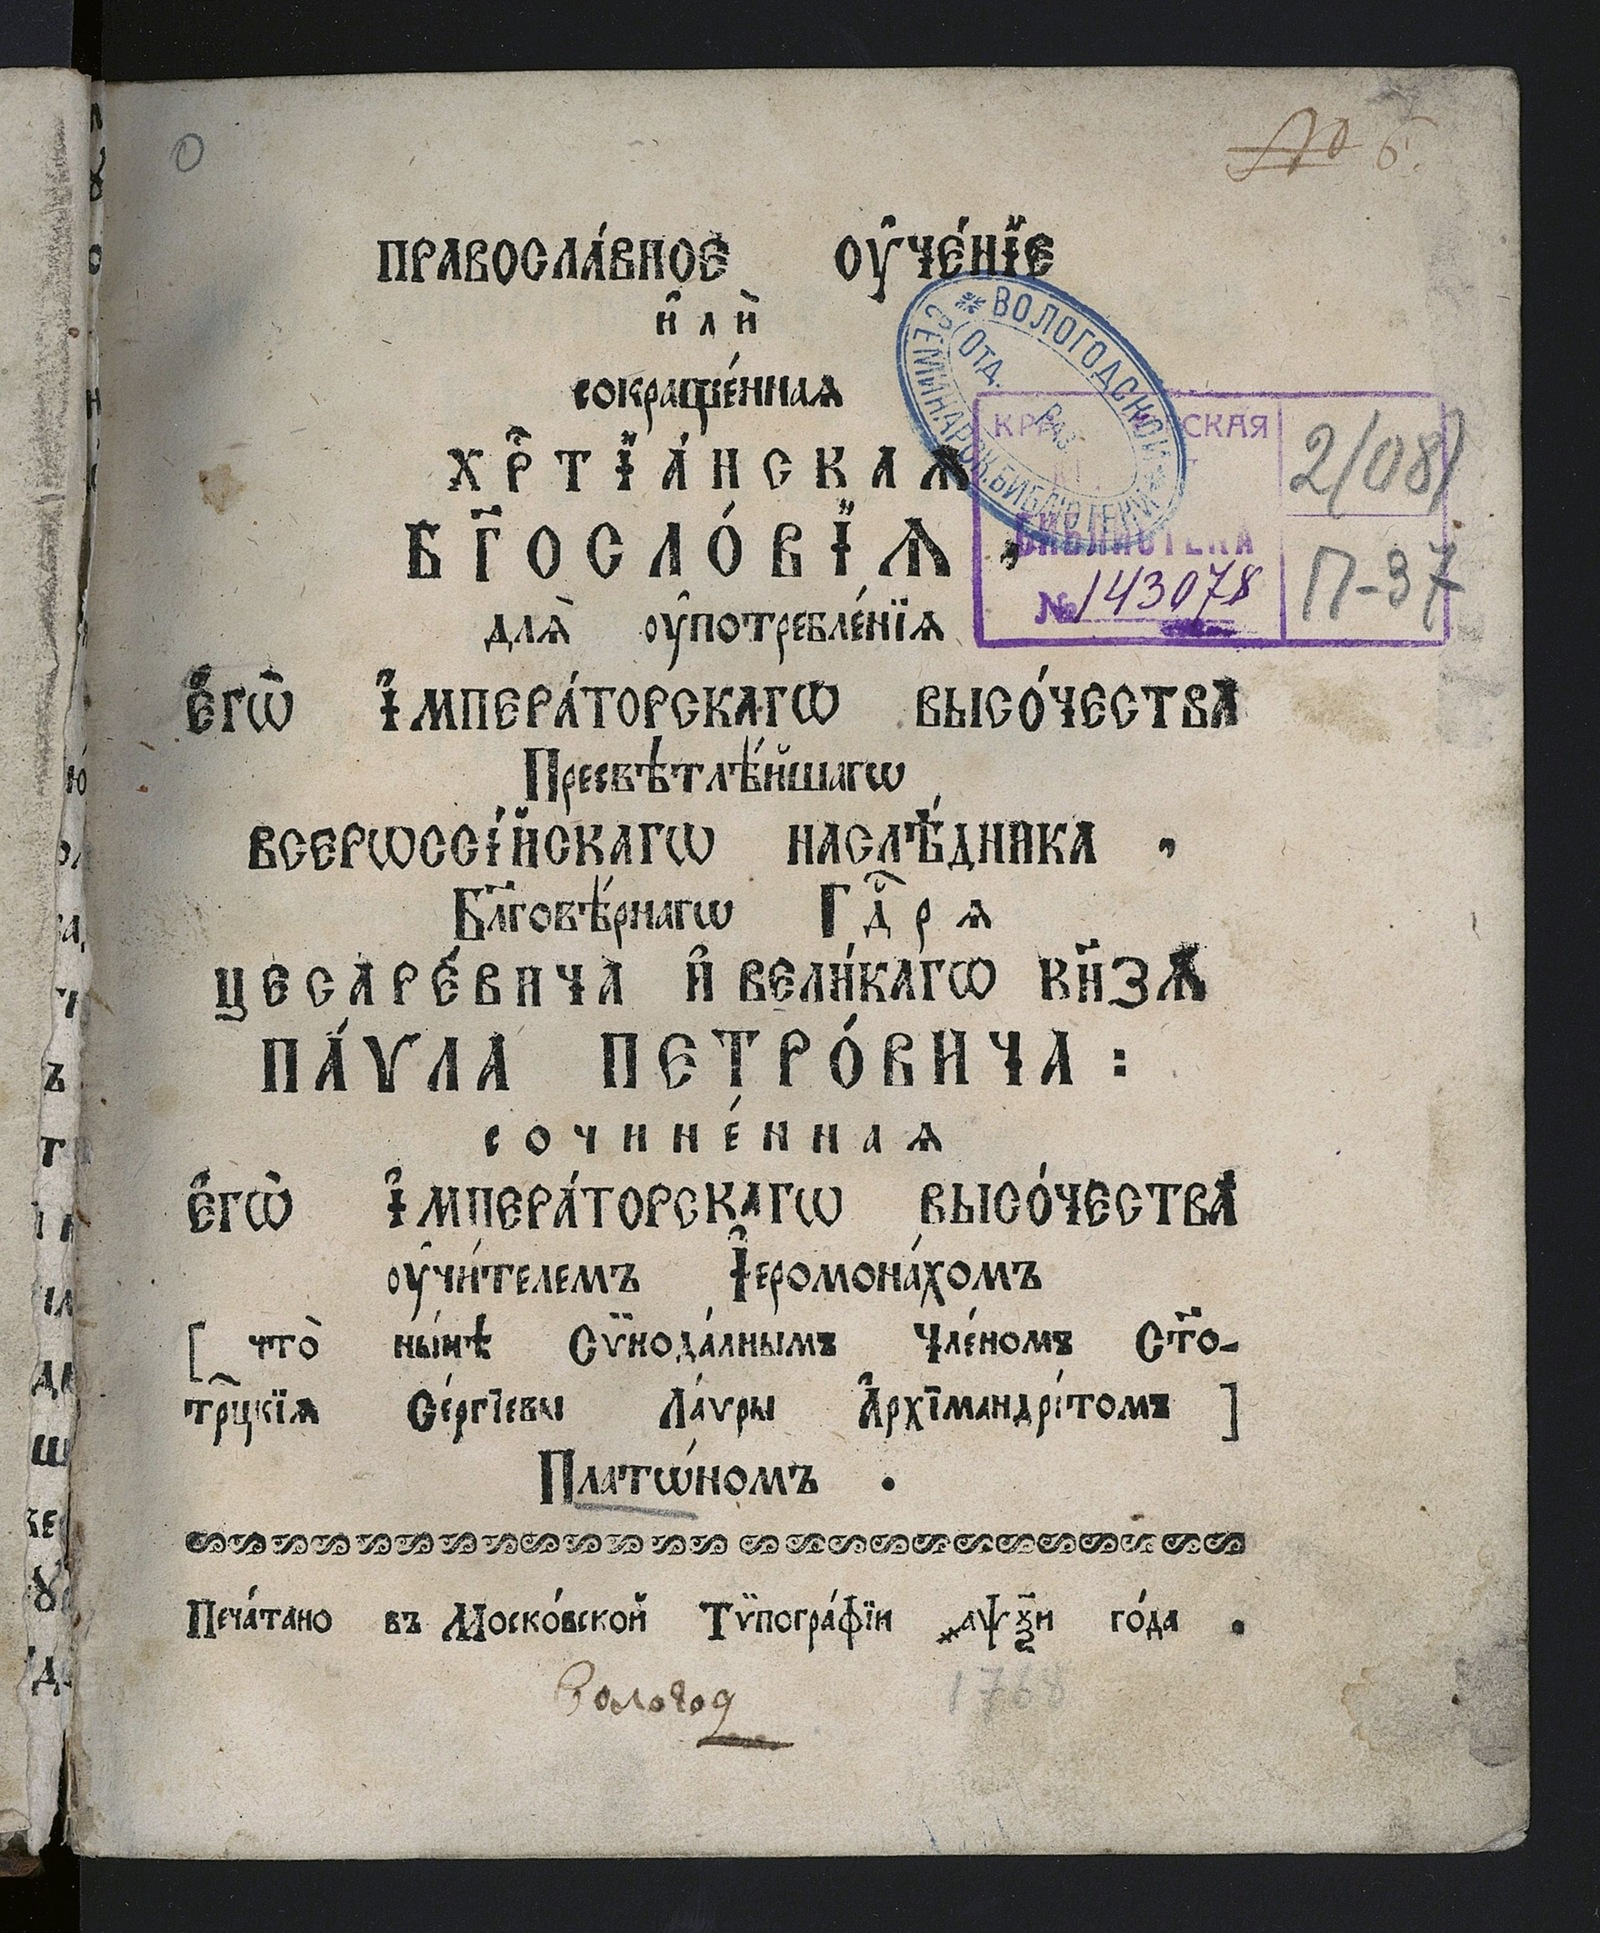 № 6.
ПРАВОСЛА́ВНОЕ ОУ҆ЧЕ́НЇЕ
и҆лѝ
сокраще́нная
ХР҇ТЇА́НСКАѦ
БГ҃ОСЛО́ВЇѦ,
длѧ̀ оу҆потребле́нїѧ
Е҆ГѠ̀ І҆МПЕРА́ТОРСКАГѠ ВЫСО́ЧЕСТВА
Пресвѣтлѣ́йшагѡ
ВСЕРѠССІ́ЙСКАГѠ НАСЛѢ́ДНИКА,
Бл҃говѣ́рнагѡ Гдⷭ҇рѧ
ЦЕСАРЕ́ВИЧА И҆ ВЕЛИ́КАГѠ КН҃ЗѦ
ПА́ѴЛА ПЕТРО́ВИЧА:
сочине́ннаѧ
Е҆ГѠ̀ І҆МПЕРА́ТОРСКАГѠ ВЫСО́ЧЕСТВА
оу҆чи́телемъ І҆еромона́хомъ
[ что̀ ны́нѣ Сѷнода́лнымъ Чле́номъ Ст҃о-
тр҃цкїѧ Се́ргїевы Ла́ѵры А҆рхїмандрі́томъ ]
Платѡ́номъ.
Печа́тано въ Моско́вской Тѷпогра́фїи ҂аѱѯ҃и го́да.
Вологод
1768
* ВОЛОГОДСКОЙ *
СЕМИНАРСК. БИБЛІОТЕКИ
Отд.
СКАЯ
БИБЛИОТЕКА
№ 143078
2/081
П-37